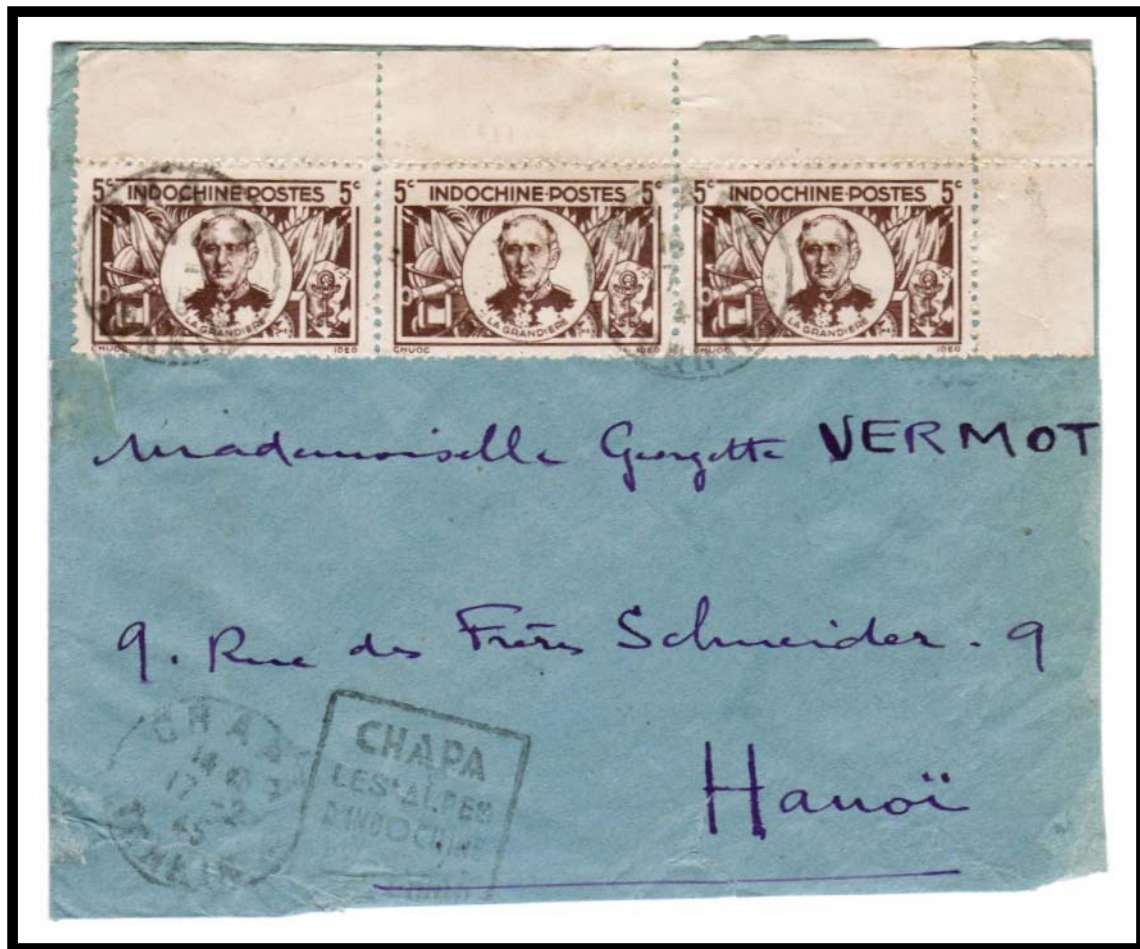 5c INDOCHINE·POSTES 5c
LA GRANDIERE
CHUOC IDEO
5c INDOCHINE·POSTES 5c
LA GRANDIERE
CHUOC IDEO
5c INDOCHINE·POSTES 5c
LA GRANDIERE
CHUOC IDEO
Mademoiselle Georgette VERMOT
9. Rue des Frères Schneider. 9
Hanoï
CHAPA
17 -2
45
CHAPA
LES ALPES
D'INDOCHINE